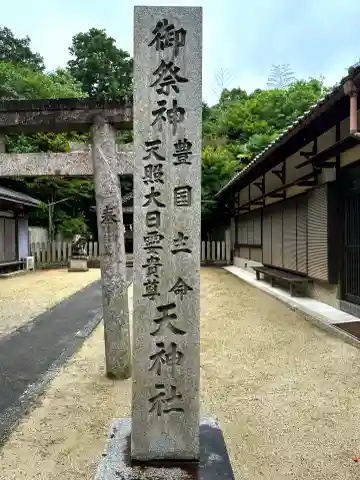 御祭神
豊国主命
天照大日孁貴尊
天神社
奉